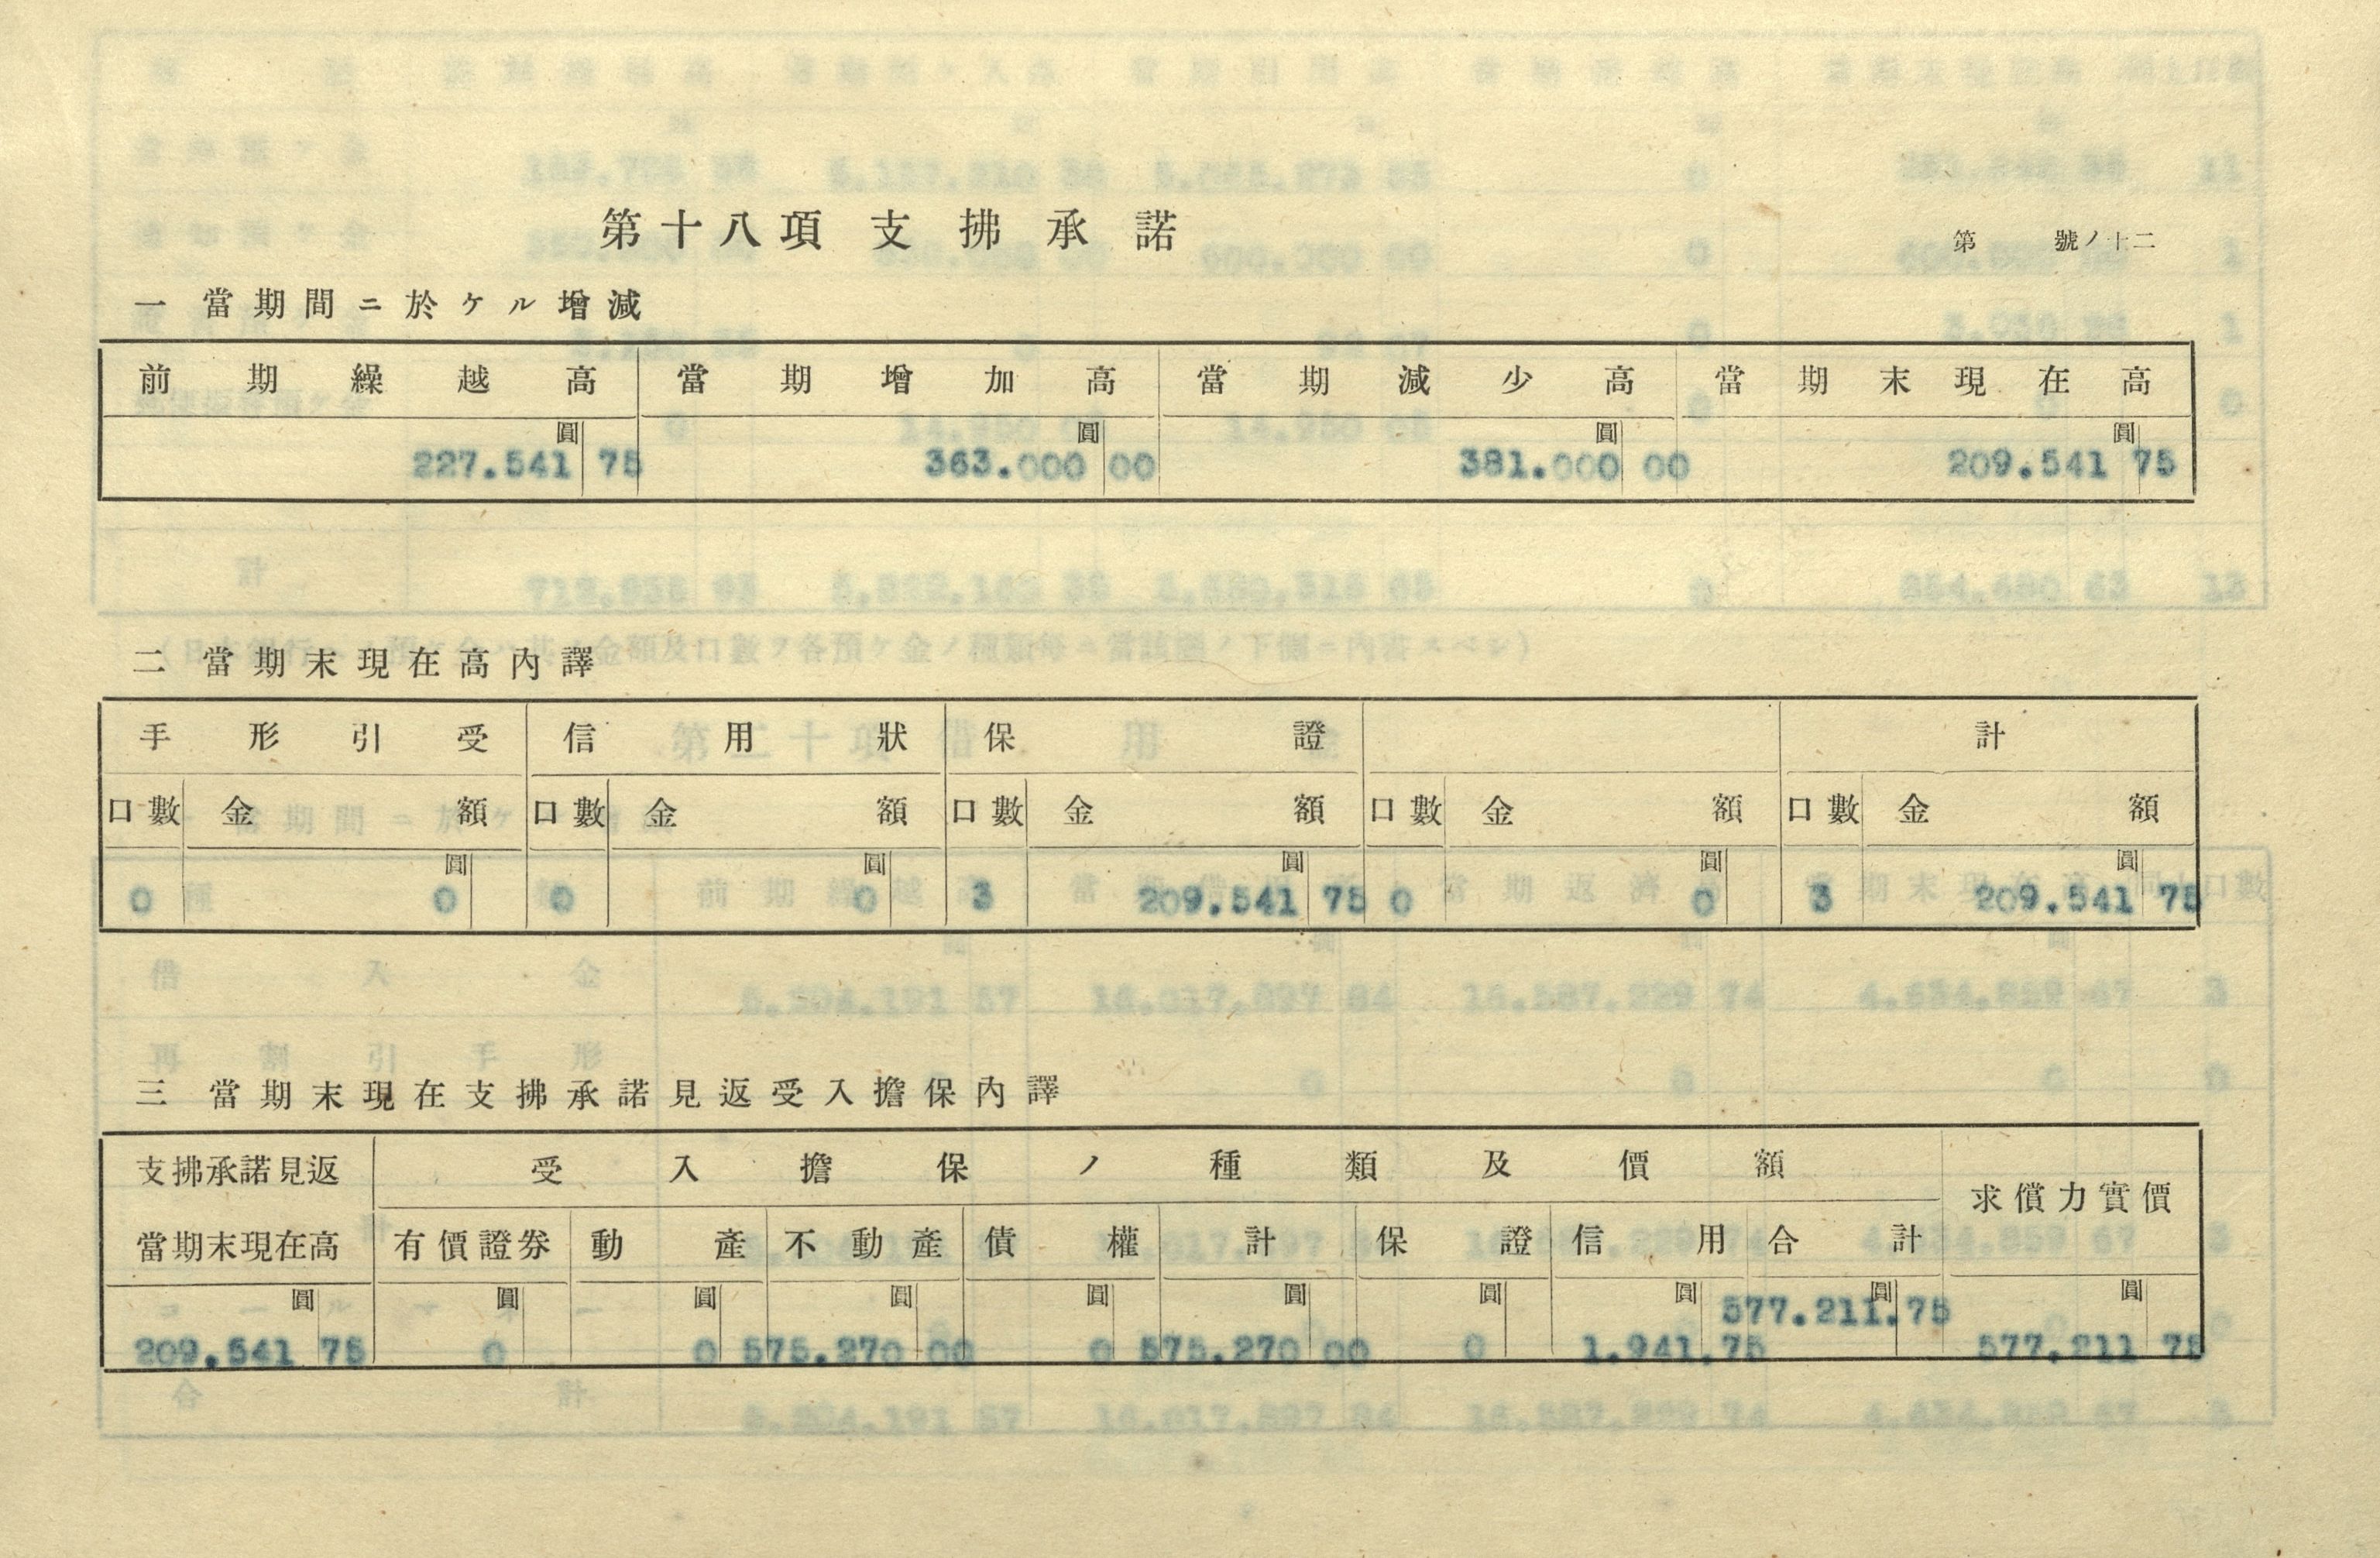 第十八項 支拂承諾
第 號ノ十二
一 當期間ニ於ケル增減
前期繰越高 當期增加高 當期減少高 當期末現在高
圓 圓 圓 圓
227.541 75 363.000 00 381.000 00 209.541 75
二 當期末現在高內譯
手形引受 信用狀 保證 計
口數 金額 口數 金額 口數 金額 口數 金額 口數 金額
圓 圓 圓 圓 圓
0 0 0 0 3 209.541 75 0 0 3 209.541 75
三 當期末現在支拂承諾見返受入擔保內譯
支拂承諾見返 受入擔保ノ種類及價額 求償力實價
當期末現在高 有價證券 動產 不動產 債權 計 保證 信用 合計
圓 圓 圓 圓 圓 圓 圓 圓 圓 圓
577.211.75
209.541 75 0 0 575.270 00 0 575.270 00 0 1.941.75 577.211 75